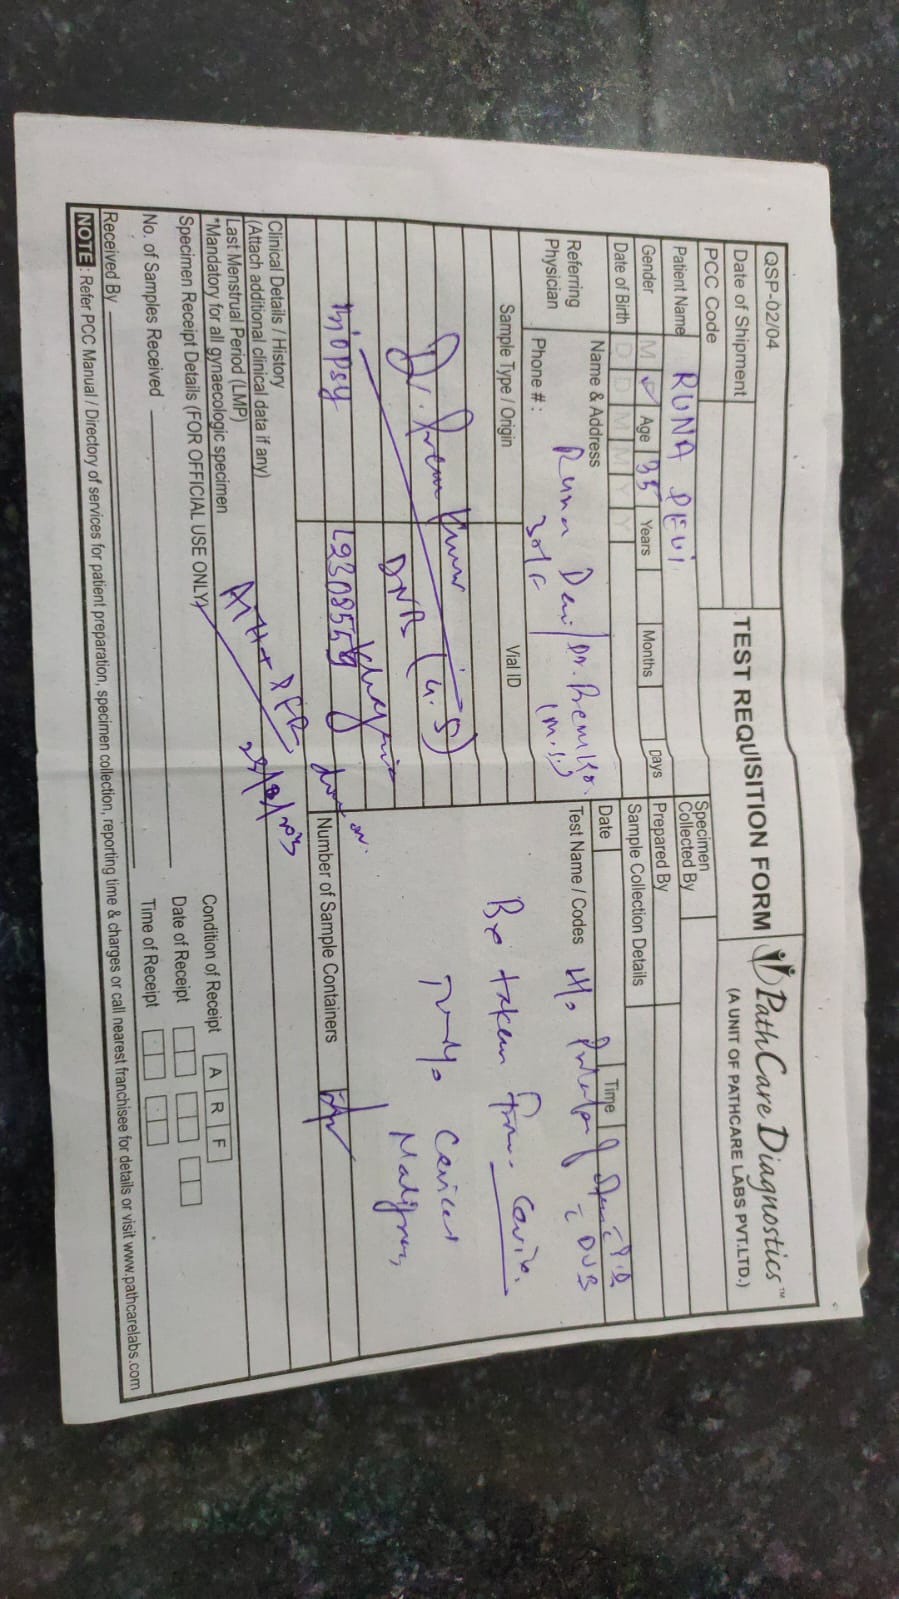 QSP-02/04
TEST REQUISITION FORM
PathCare Diagnostics™
(A UNIT OF PATHCARE LABS PVT.LTD.)
Date of Shipment
PCC Code
Specimen Collected By
Patient Name RUNA DEVI
Prepared By
Gender M ✓ Age 35 Years Months Days
Sample Collection Details
Date of Birth D D M M Y Y
Date Time
Referring Physician
Name & Address Runa Devi / Dr.
30/F
Phone # :
Test Name / Codes H/o
DUB
Sample Type / Origin Vial ID
Bx taken from
Dr. Prem Kumar
DNB
Malignancy
Biopsy L9308559
Number of Sample Containers
Clinical Details / History
(Attach additional clinical data if any)
Last Menstrual Period (LMP)
*Mandatory for all gynaecologic specimen
Specimen Receipt Details (FOR OFFICIAL USE ONLY)
Condition of Receipt A R F
Date of Receipt
No. of Samples Received
Time of Receipt
Received By
NOTE : Refer PCC Manual / Directory of services for patient preparation, specimen collection, reporting time & charges or call nearest franchisee for details or visit www.pathcarelabs.com